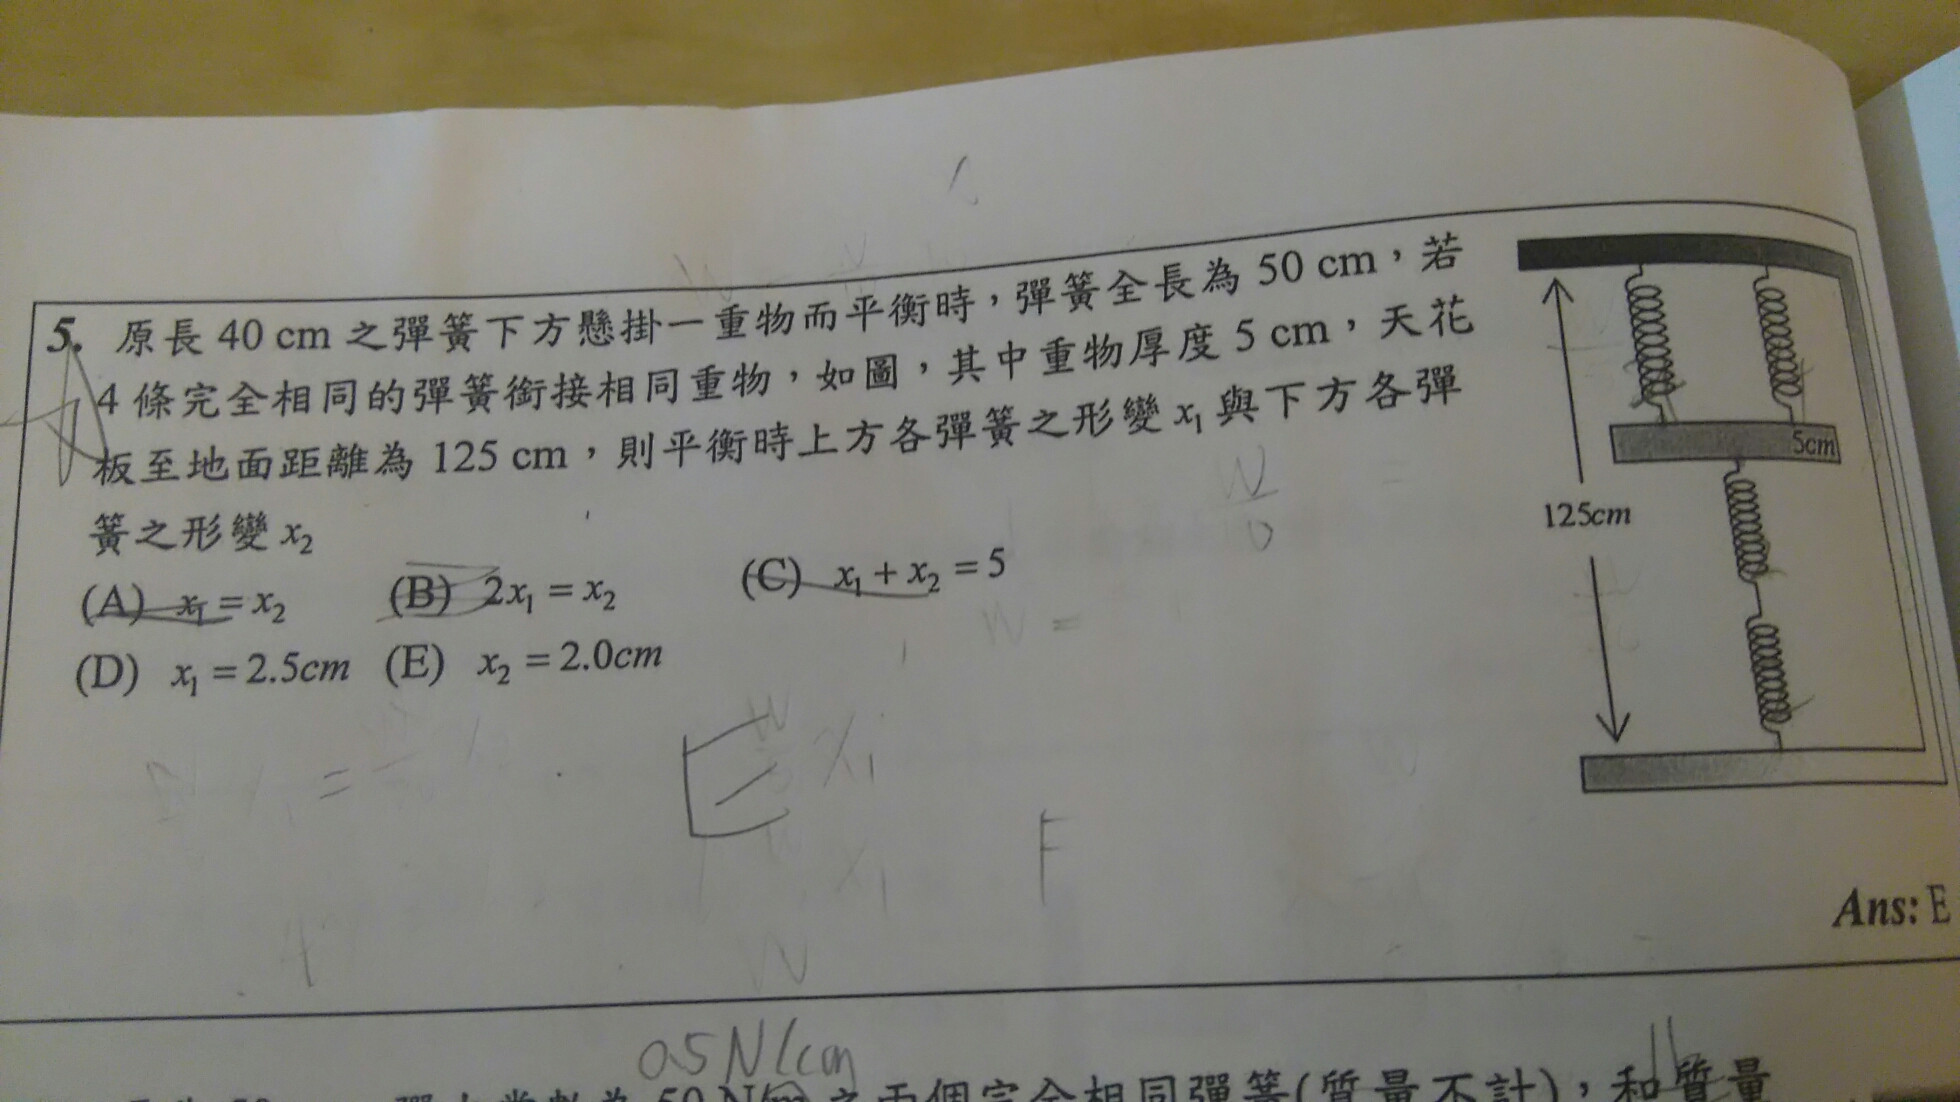 5. 原長 40 cm 之彈簧下方懸掛一重物而平衡時，彈簧全長為 50 cm，若
4 條完全相同的彈簧銜接相同重物，如圖，其中重物厚度 5 cm，天花
板至地面距離為 125 cm，則平衡時上方各彈簧之形變 x₁ 與下方各彈
簧之形變 x₂
(A) x₁ = x₂ (B) 2x₁ = x₂ (C) x₁ + x₂ = 5
(D) x₁ = 2.5cm (E) x₂ = 2.0cm
5cm
125cm
W
0
W =
E
x₁
x₁
F
W
Ans: E
0.5 N/cm
50 N/m 之兩個完全相同彈簧(質量不計)，和質量